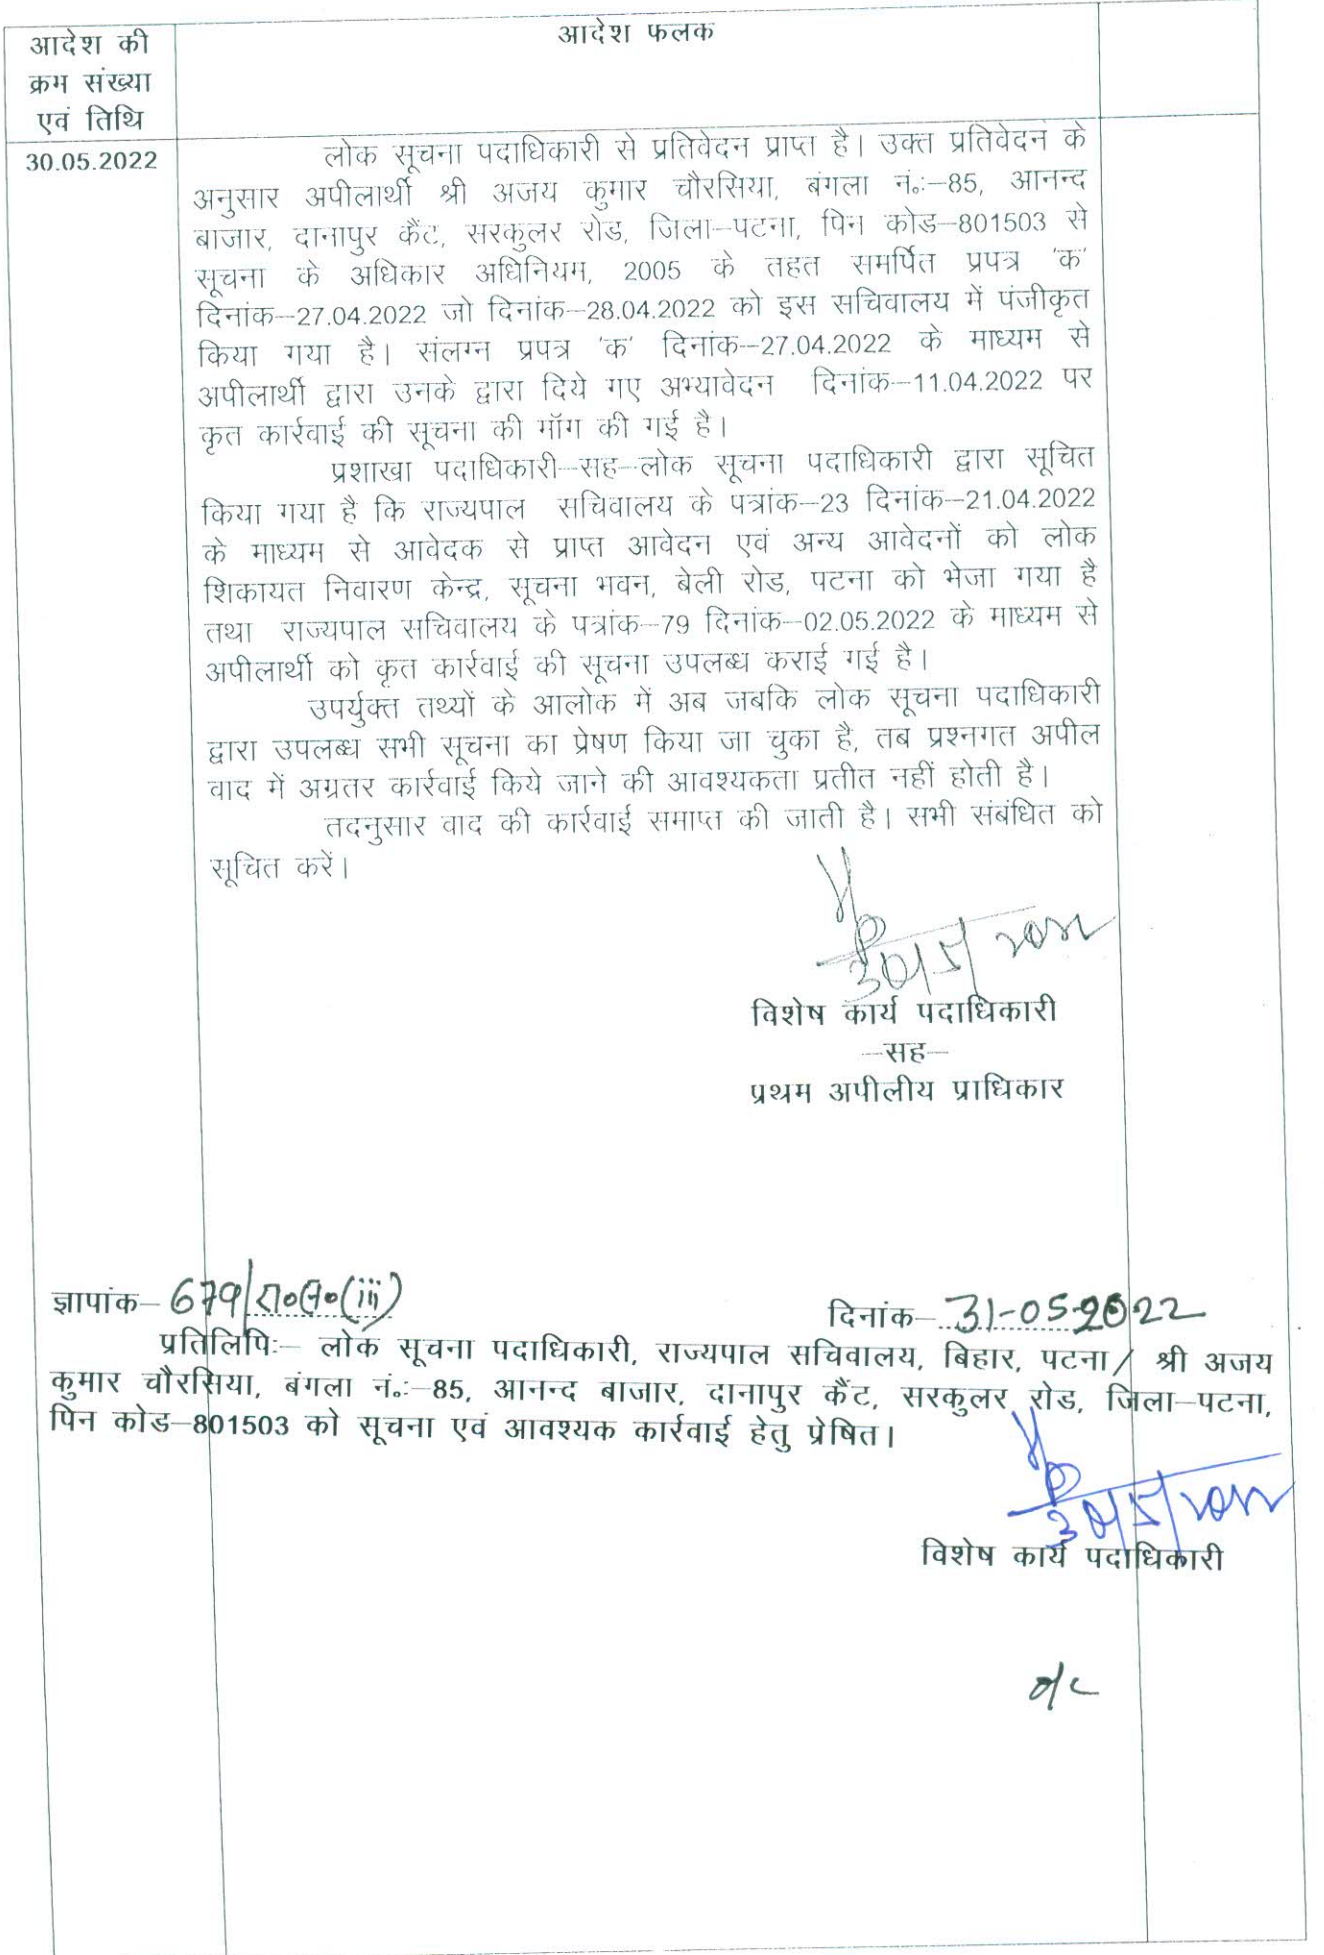 आदेश की
क्रम संख्या
एवं तिथि
आदेश फलक
30.05.2022
लोक सूचना पदाधिकारी से प्रतिवेदन प्राप्त है। उक्त प्रतिवेदन के
अनुसार अपीलार्थी श्री अजय कुमार चौरसिया, बंगला नं०:–85, आनन्द
बाजार, दानापुर कैंट, सरकुलर रोड, जिला–पटना, पिन कोड–801503 से
सूचना के अधिकार अधिनियम, 2005 के तहत समर्पित प्रपत्र 'क'
दिनांक–27.04.2022 जो दिनांक–28.04.2022 को इस सचिवालय में पंजीकृत
किया गया है। संलग्न प्रपत्र 'क' दिनांक–27.04.2022 के माध्यम से
अपीलार्थी द्वारा उनके द्वारा दिये गए अभ्यावेदन दिनांक–11.04.2022 पर
कृत कार्रवाई की सूचना की मॉग की गई है।
प्रशाखा पदाधिकारी–सह–लोक सूचना पदाधिकारी द्वारा सूचित
किया गया है कि राज्यपाल सचिवालय के पत्रांक–23 दिनांक–21.04.2022
के माध्यम से आवेदक से प्राप्त आवेदन एवं अन्य आवेदनों को लोक
शिकायत निवारण केन्द्र, सूचना भवन, बेली रोड, पटना को भेजा गया है
तथा राज्यपाल सचिवालय के पत्रांक–79 दिनांक–02.05.2022 के माध्यम से
अपीलार्थी को कृत कार्रवाई की सूचना उपलब्ध कराई गई है।
उपर्युक्त तथ्यों के आलोक में अब जबकि लोक सूचना पदाधिकारी
द्वारा उपलब्ध सभी सूचना का प्रेषण किया जा चुका है, तब प्रश्नगत अपील
वाद में अग्रतर कार्रवाई किये जाने की आवश्यकता प्रतीत नहीं होती है।
तदनुसार वाद की कार्रवाई समाप्त की जाती है। सभी संबंधित को
सूचित करें।
विशेष कार्य पदाधिकारी
–सह–
प्रथम अपीलीय प्राधिकार
ज्ञापांक– 679/रा०स०(iii) दिनांक– 31-05-2022
प्रतिलिपिः– लोक सूचना पदाधिकारी, राज्यपाल सचिवालय, बिहार, पटना/ श्री अजय
कुमार चौरसिया, बंगला नं०:–85, आनन्द बाजार, दानापुर कैंट, सरकुलर रोड, जिला–पटना,
पिन कोड–801503 को सूचना एवं आवश्यक कार्रवाई हेतु प्रेषित।
विशेष कार्य पदाधिकारी
o/c